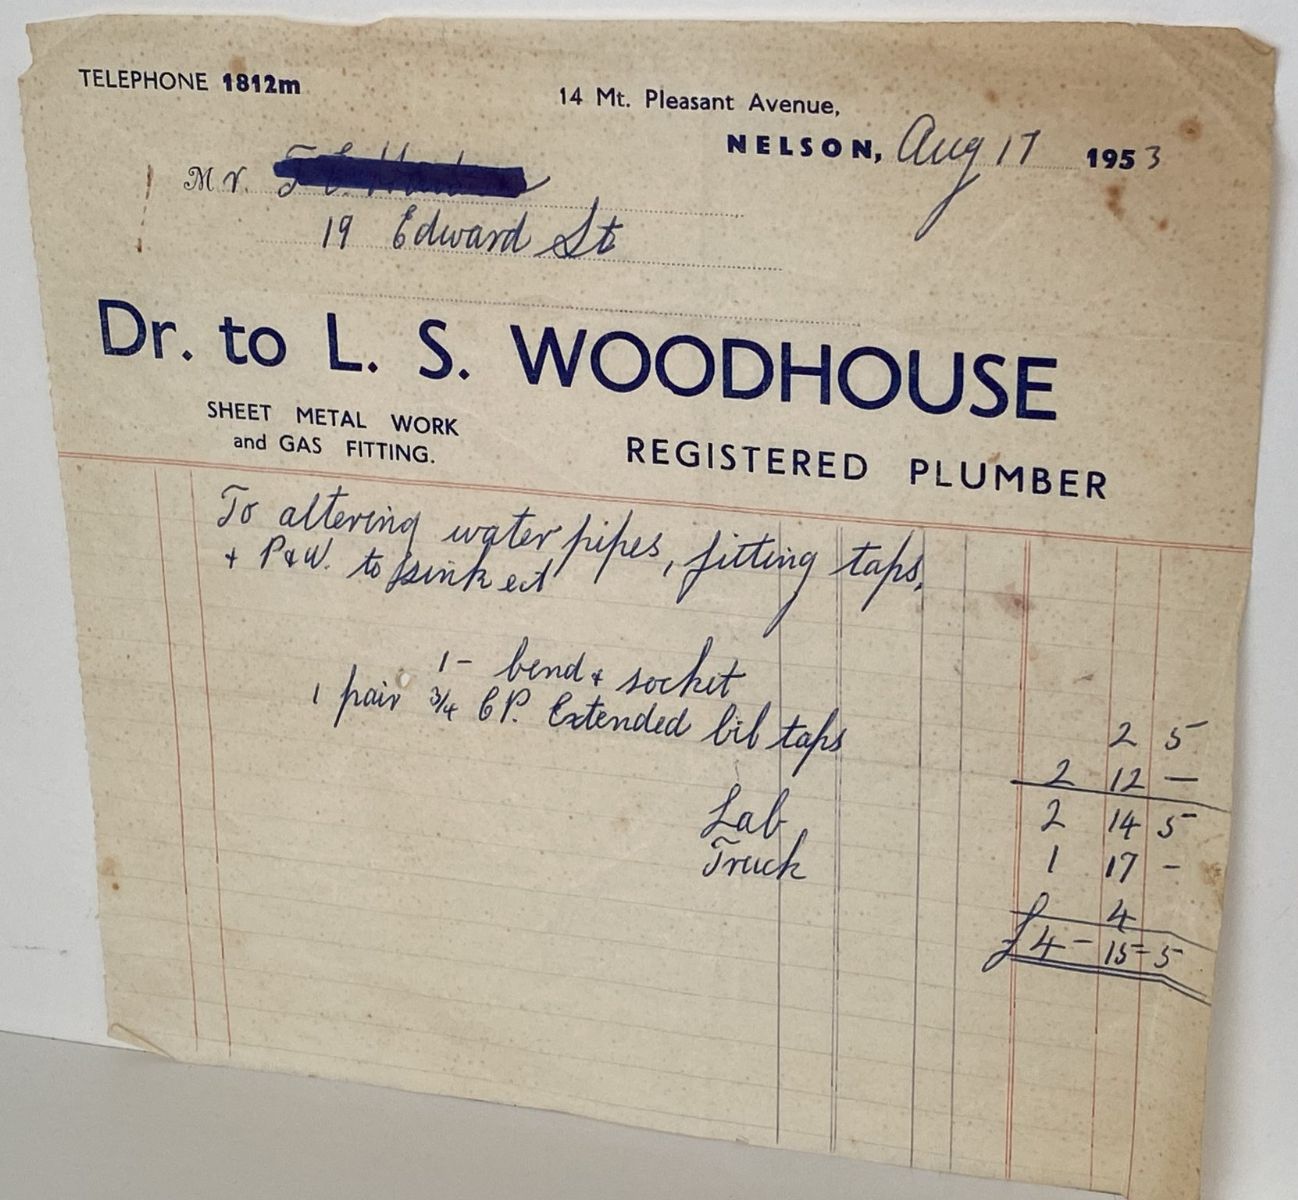 TELEPHONE 1812m
14 Mt. Pleasant Avenue,
NELSON, Aug 17 1953
Mr.
19 Edward St
Dr. to L. S. WOODHOUSE
SHEET METAL WORK
and GAS FITTING.
REGISTERED PLUMBER
To altering water pipes, fitting taps,
+ P&W. to sink ect
1 - bend & socket 2 5
1 pair 3/4 CP. Extended bib taps 2 12 —
2 14 5
Lab 1 17 -
Truck 4
£4 - 15 = 5